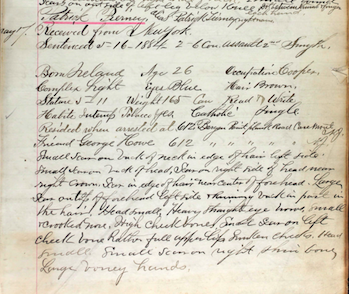 Scar on out side of left leg below Knee
Patrick Kerney, as Patrick Kearney
Received from New York
Sentenced 5-16-1884 2-6 Con assault 2nd Smyth.
Born Ireland Age 26 Occupation Cooper,
Complex Light Eyes Blue Hair Brown,
Stature 5-11 Weight 165 Can Read & Write
Habits Intemp Tobacco Yes Catholic Single
Resided when arrested at 612
Friend George Howe 612 " " " "
Small Scar on back of neck in edge of hair left side
Small Scar on back of head, Scar on right side of head near
right Crown, Scar in edge of hair near center of forehead, Large
Scar on top of forehead left side & running back in part in
the hair, Head small, Heavy straight eye brows, small
crooked nose, High cheek bones, small Scar on left
cheek bone Rather full upper lip, Sunken cheeks, Hand
small Small Scar on right shin bone,
Large boney hands.